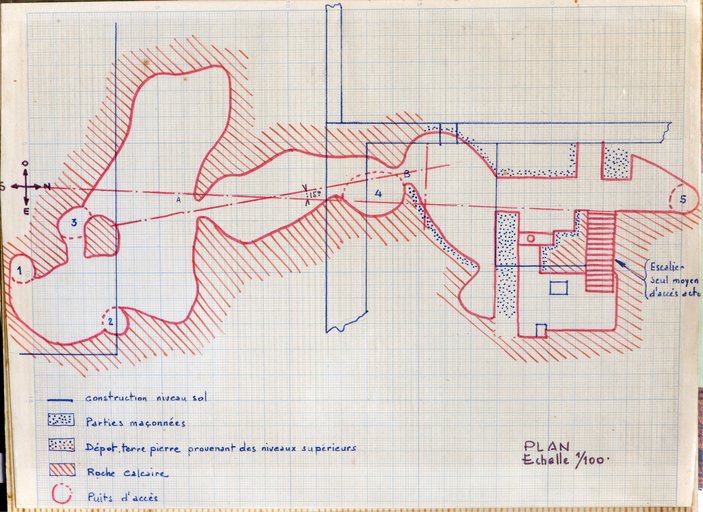 O
S N
E
A
15°
B
4
3
5
1
2
Escalier
seul moyen
d'accès
construction niveau sol
Parties maçonnées
Dépot, terre pierre provenant des niveaux supérieurs
Roche calcaire
Puits d'accès
PLAN
Echelle 1/100.